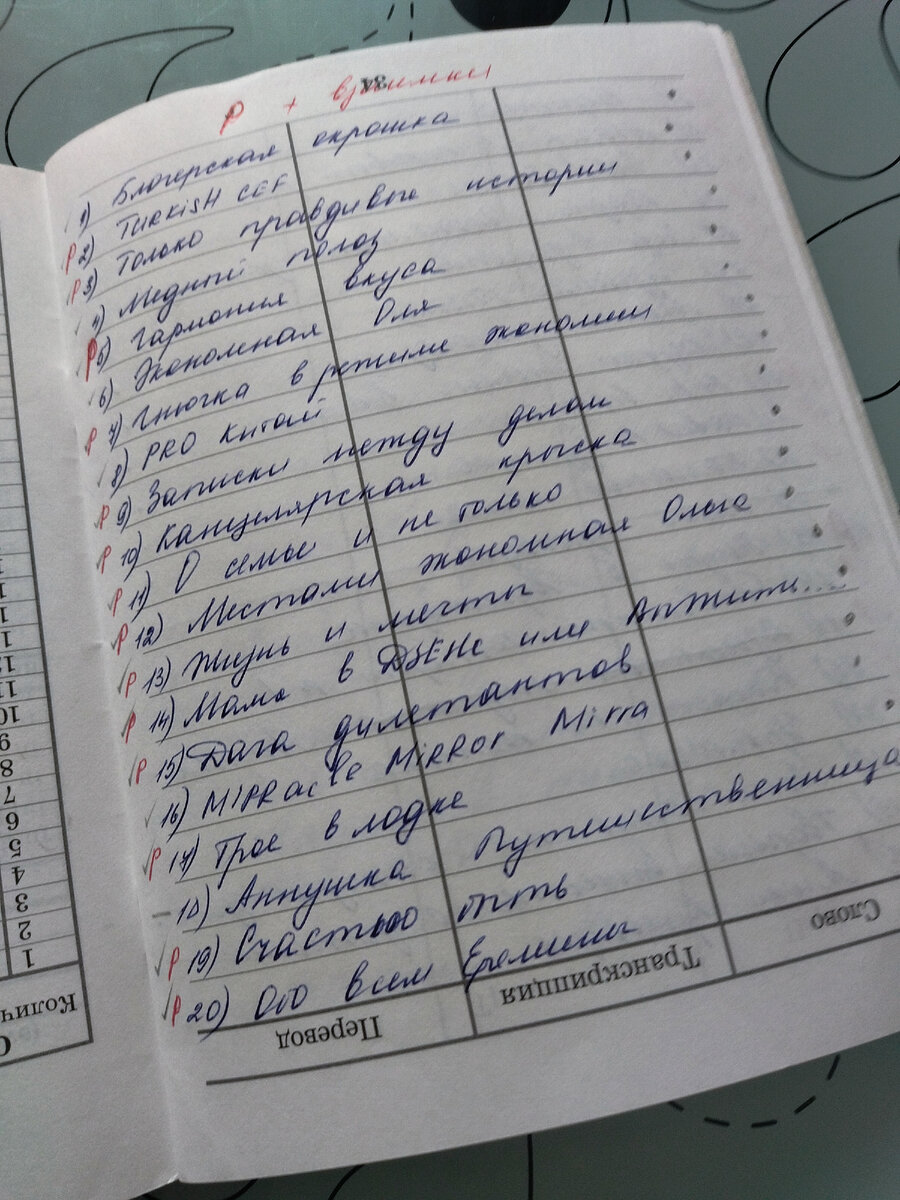 34
р + взаимки
1) Блогерская окрошка
р 2) TURKiSH
р 3) Только правдивые истории
4) Медный полоз
р 5) Гармония вкуса
6) Экономная Оля
р 7) в режиме экономии
8) PRO Китай
р 9) Записки между делом
р 10) Канцелярская крыска
р 11) О семье и не только
р 12) Местами экономная Ольга
р 13) Жизнь и мечты
р 14) Мама в ДЗЕНе или
р 15) Дача дилетантов
16) MIRRacle MiRRor Mirra
р 17) Трое в лодке
18) Аннушка Путешественница
р 19) Счастью быть
р 20) Обо всем
Перевод Транскрипция Слово
Колич
1
2
3
4
5
6
7
8
9
10
11
12